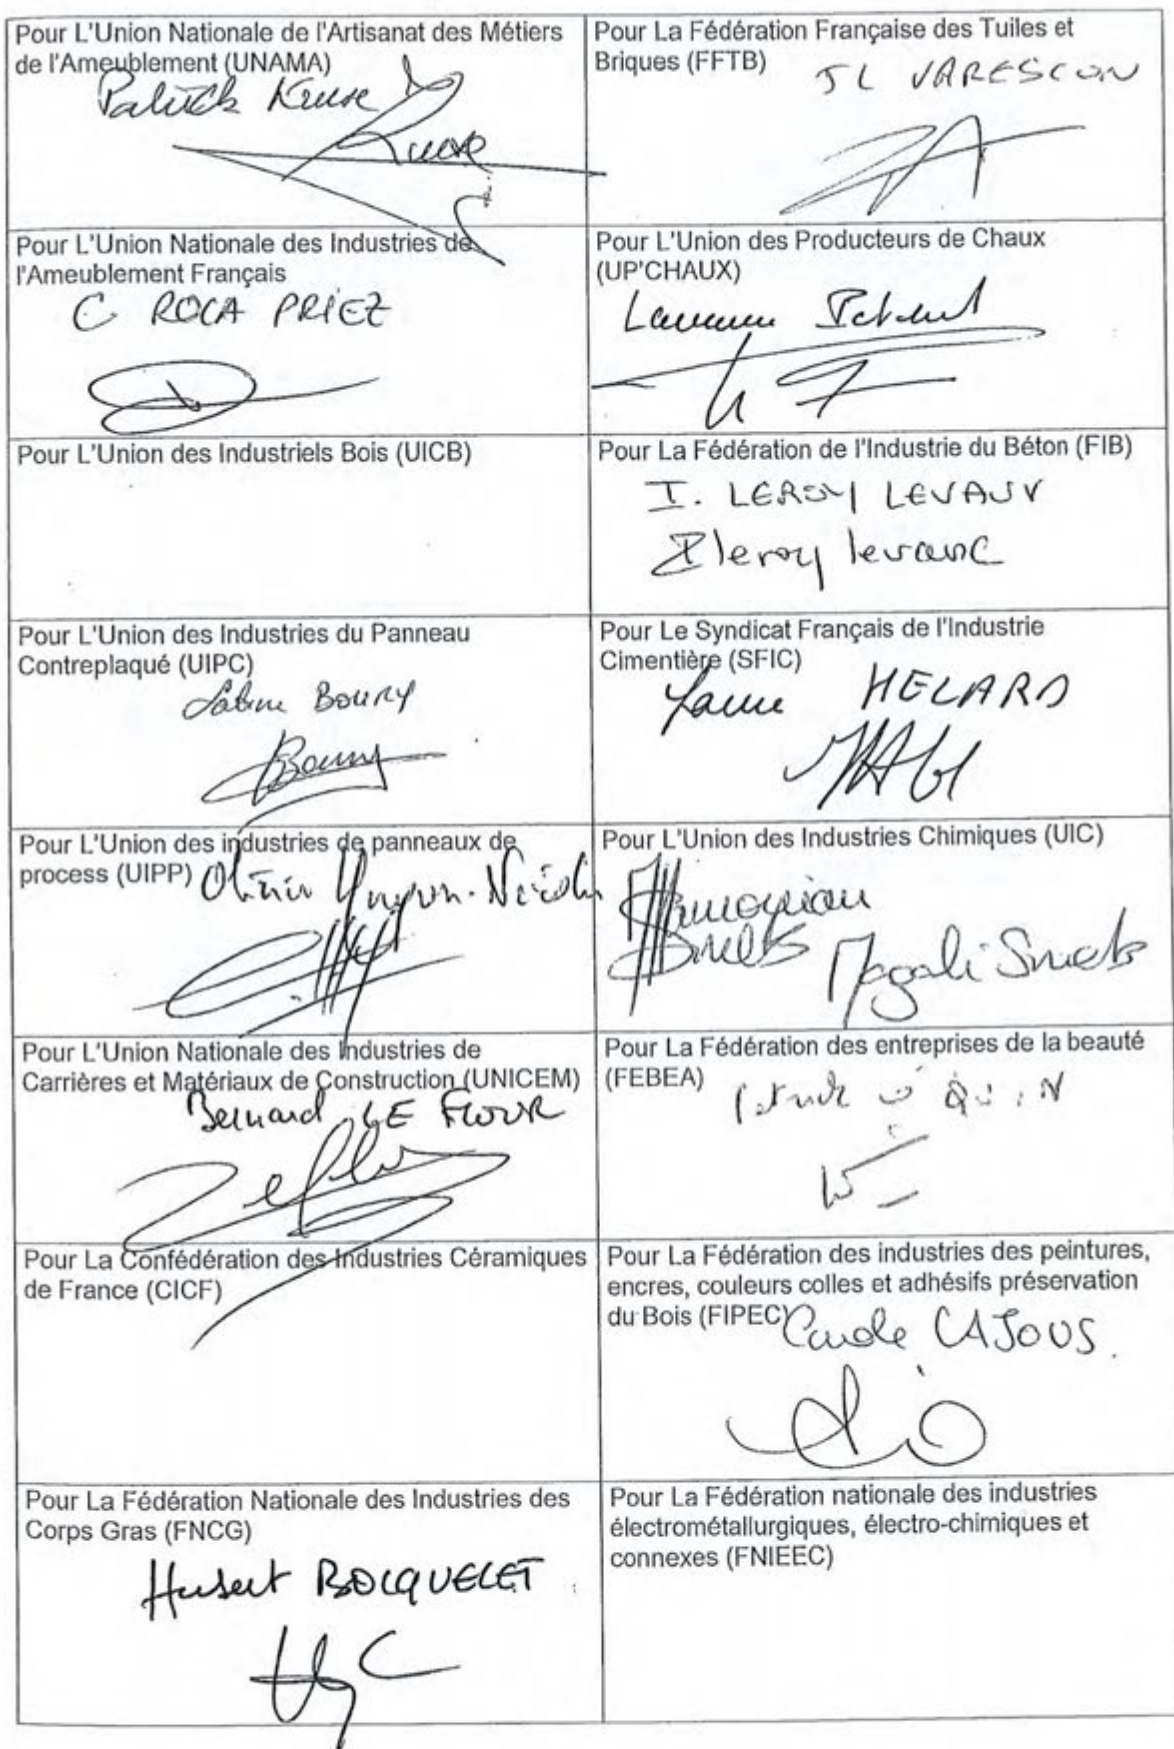 Pour L'Union Nationale de l'Artisanat des Métiers
de l'Ameublement (UNAMA)
Patrick Kruse
Kruse
Pour La Fédération Française des Tuiles et
Briques (FFTB)
JL VARESCON
Pour L'Union Nationale des Industries de
l'Ameublement Français
C ROCA PRIEZ
Pour L'Union des Producteurs de Chaux
(UP'CHAUX)
Pour L'Union des Industriels Bois (UICB)
Pour La Fédération de l'Industrie du Béton (FIB)
I. LEROY LEVAUX
Pour L'Union des Industries du Panneau
Contreplaqué (UIPC)
Sabine BOURY
Boury
Pour Le Syndicat Français de l'Industrie
Cimentière (SFIC)
HELARD
Pour L'Union des industries de panneaux de
process (UIPP)
Pour L'Union des Industries Chimiques (UIC)
Smets
Magali Smets
Pour L'Union Nationale des Industries de
Carrières et Matériaux de Construction (UNICEM)
Bernard LE FLOUR
Pour La Fédération des entreprises de la beauté
(FEBEA)
Pour La Confédération des Industries Céramiques
de France (CICF)
Pour La Fédération des industries des peintures,
encres, couleurs colles et adhésifs préservation
du Bois (FIPEC)
Carole CAJOUS
Pour La Fédération Nationale des Industries des
Corps Gras (FNCG)
Hubert BOCQUELET
Pour La Fédération nationale des industries
électrométallurgiques, électro-chimiques et
connexes (FNIEEC)